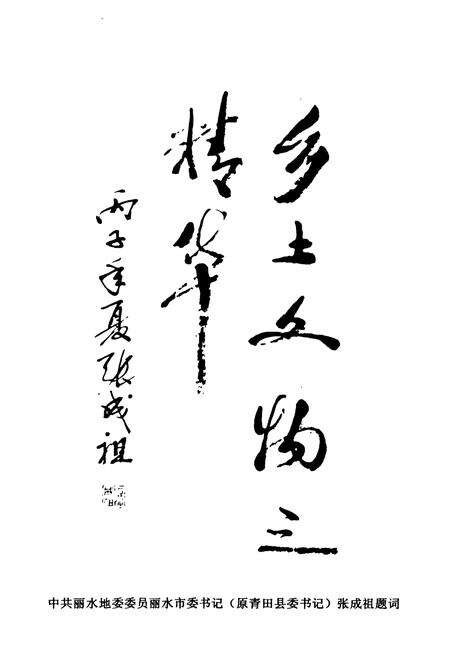 乡土文物之
精华
丙子年夏张成祖
中共丽水地委委员丽水市委书记（原青田县委书记）张成祖题词